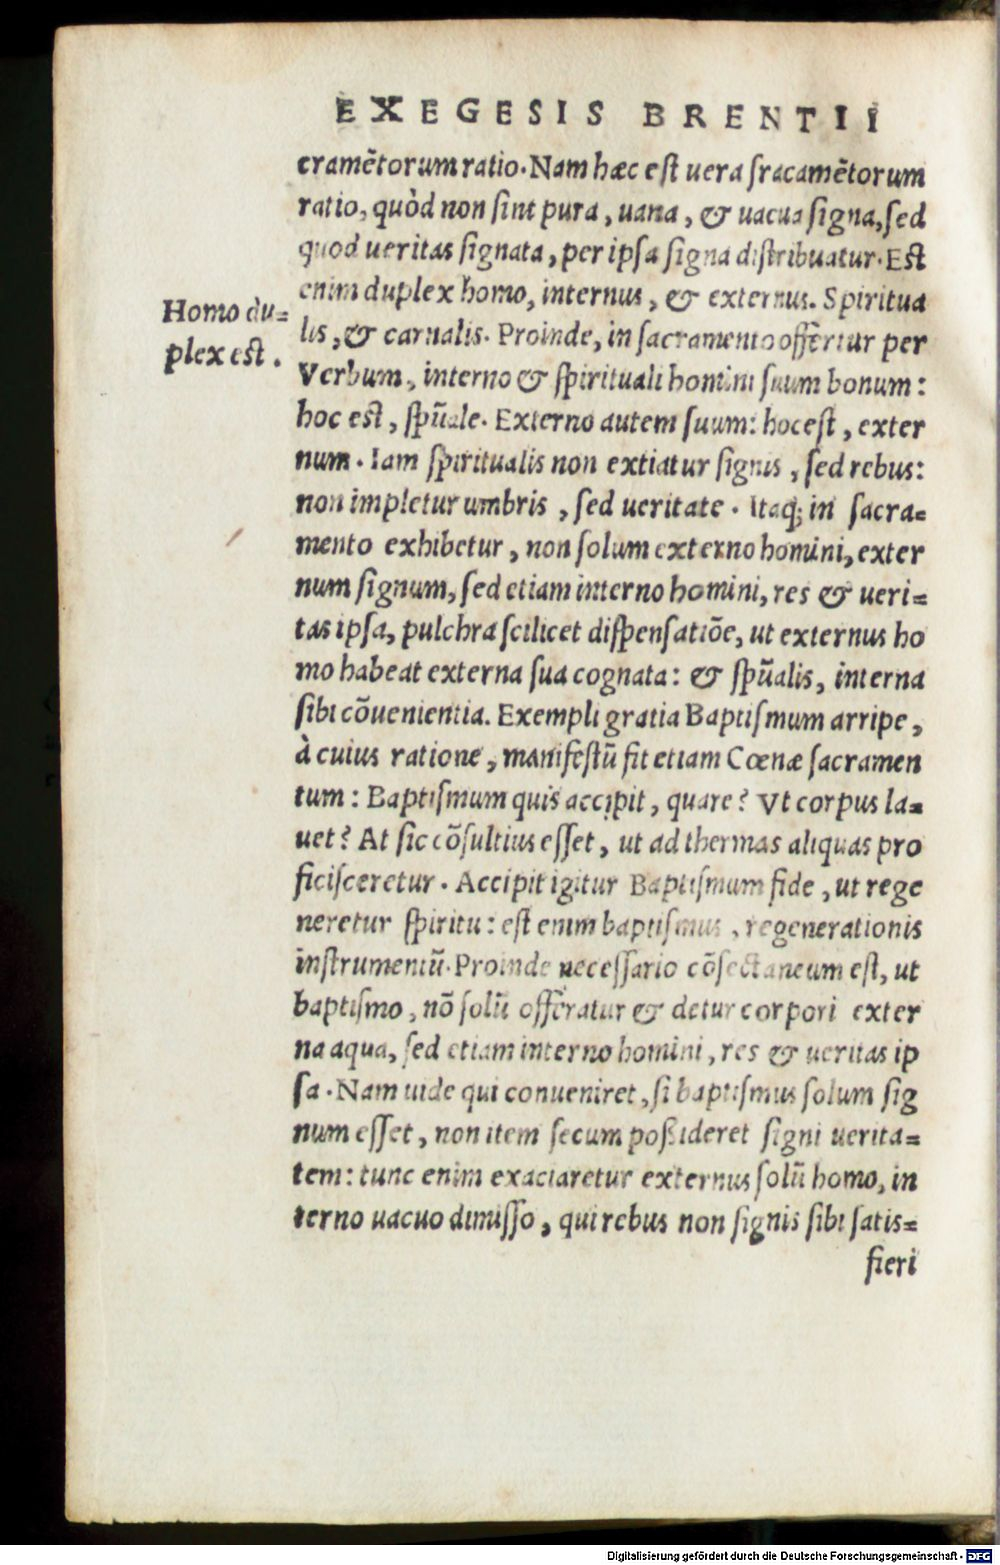 EXEGESIS BRENTII
cramẽtorum ratio. Nam hæc est uera sracamẽtorum
ratio, quòd non sint pura, uana, & uacua signa, sed
quod ueritas signata, per ipsa signa distribuatur. Est
enim duplex homo, internus, & externus. Spiritua
Homo du=
plex est.
lis, & carnalis. Proinde, in sacramento offertur per
Verbum, interno & spirituali homini suum bonum:
hoc est, spũale. Externo autem suum: hoc est, exter
num. Iam spiritualis non extiatur signis, sed rebus:
non impletur umbris, sed ueritate. Itaq; in sacra=
mento exhibetur, non solum externo homini, exter
num signum, sed etiam interno homini, res & ueri=
tas ipsa, pulchra scilicet dispensatiõe, ut externus ho
mo habeat externa sua cognata: & spũalis, interna
sibi cõuenientia. Exempli gratia Baptismum arripe,
à cuius ratione, manifestũ fit etiam Cœnæ sacramen
tum: Baptismum quis accipit, quare? Vt corpus la=
uet? At sic cõsultius esset, ut ad thermas aliquas pro
ficisceretur. Accipit igitur Baptismum fide, ut rege
neretur spiritu: est enim baptismus, regenerationis
instrumentũ. Proinde necessario cõsectaneum est, ut
baptismo, nõ solũ offeratur & detur corpori exter
na aqua, sed etiam interno homini, res & ueritas ip
sa. Nam uide qui conueniret, si baptismus solum sig
num esset, non item secum poßideret signi uerita=
tem: tunc enim exaciaretur externus solũ homo, in
terno uacuo dimisso, qui rebus non signis sibi satis=
fieri
Digitalisierung gefördert durch die Deutsche Forschungsgemeinschaft - DFG